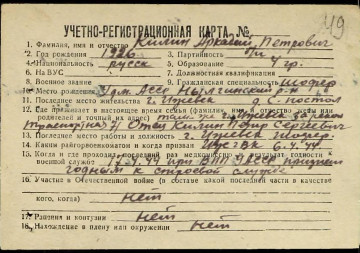 49
УЧЕТНО-РЕГИСТРАЦИОННАЯ КАРТА №
1. Фамилия, имя и отчество Килин Аркадий Петрович
2. Год рождения 1926 3. Партийность б/п
4. Национальность русск 5. Образование 4 гр.
6. На ВУС 7. Должностная квалификация
8. Военное звание 9. Гражданская специальность шофер
10. Место рождения Удм. АССР Нылгинский р-н
11. Последнее место жительства г. Ижевск
12. Где проживает в настоящее время семья (фамилия, имя и отчество жены или
родителей и точный их адрес) г. Ижевск за рекой
Отец Килин Петр Сергеевич
13. Последнее место работы и должность г. Ижевск шофер
14. Каким райгорвоенкоматом и когда призван 6.4.44
15. Когда и где проходил последний раз медкомиссию и результат годности
к военной службе при АССР признан
годным к строевой службе
16. Участие в Отечественной войне (в составе какой последней части и в качестве
кого, когда) нет
17. Ранения и контузии нет
18. Нахождение в плену или окружении нет